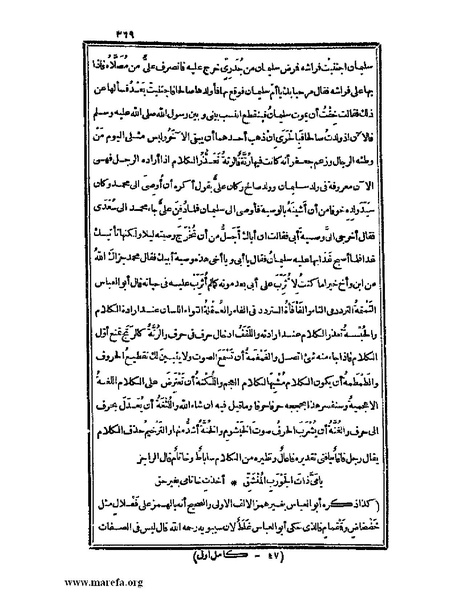 ٣٦٩
سليمان اجتنبت فراشه فمرض سليمان من جدرى خرج عليه فانصرف علىٌّ من مُصَلّاه فاذا
بها على فراشه فقال مرحبا بك يا أم سليمان فوقع بها فأولدها صالحا فاجتنبت بعد فسألها عن
ذلك فقالت خِفْتُ أن يموت سليمان فينقطع النسب بينى وبين رسول الله صلى الله عليه وسلم
فالآن اذ ولدت صالحا فبالحرى ان ذهب أحدهما أن يبقى الآخر وليس مثلى اليوم من
وطئه الرجال وزعم جعفر أنه كانت فيها رُتَّةٌ فالرتة تَعَذُّرُ الكلام اذا أراده الرجل فهى
الآن معروفة فى ولد سليمان وولد صالح وكان علىٌّ يقول أكره أن أُوصى الى محمد وكان
سيد ولده خوفا من أن أَشينَه بالوصية فأوصى الى سليمان فلما دفن علىٌّ جاء محمد الى سُعْدَى
فقال أخرجى الىّ وصية أبى فقالت ان أباك أجلّ من أن تُخرَج وصيته ليلا ولكنها تأتيك
غدا فلما أصبح غدا بها عليه سليمان فقال يا أبى ويا أخى هذه وصية أبيك فقال محمد جزاك الله
من ابن وأخ خيرا ما كنت لأُثَرِّبَ على أبى بعد موته كما لم أُثَرِّب عليه فى حياته قال أبو العباس
التَّمْتَمة الترديد فى التاء والفَأْفَأَة التردد فى الفاء والعُقْلة التواء اللسان عند ارادة الكلام
والحُبْسة تعذر الكلام عند ارادته واللَّفَف ادخال حرف فى حرف والرُّتَّة كالريح تمنع أول
الكلام فاذا جاء منه شئ اتصل والغمغمة أن تسمع الصوت ولا يتبين لك تقطيع الحروف
والطمطمة أن يكون الكلام مُشْبِهًا لكلام العجم واللُّكْنة أن تَعْتَرض على الكلام اللغة
الاعجمية وسنفسر هذا بحججه حرفا حرفا وما قيل فيه ان شاء الله واللُّثْغَة أن يُعْدَل بحرف
الى حرف والغُنَّة أن يُشْرَب الحرفُ صوتَ الخَيْشوم والخُنَّة أشدُّ منها والترخيم حذف الكلام
يقال رجل فأفاء يا فتى تقديره فاعال ونظيره من الكلام ساباط وخاتام قال الراجز
يا مَىَّ ذات الجَوْرَبِ المُنْشَقِّ * أخذتِ خاتامى بغير حق
(كذا ذكره أبو العباس بغير همز الالف الاولى والصحيح أنه بالهمز على فَعْلالٍ مثل
خضخاض وقمقام فالذى حكى أبو العباس غلط لان سيبويه رحمه الله قال ليس فى الصفات
(٤٧ - كامل اول)
www.marefa.org